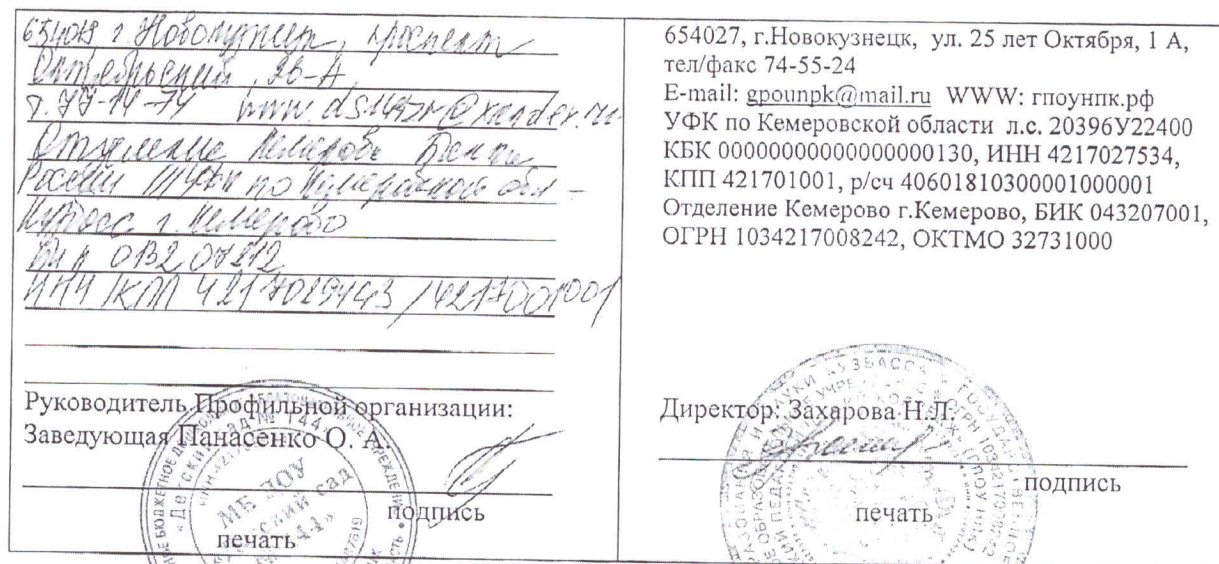 г. Новокузнецк, проспект
Октябрьский, 28-А
т. 77-14-74
Отделение Кемерово Банка
России // УФК по Кемеровской обл -
Кузбасс г. Кемерово
Бик 013207212
ИНН/КПП 4217029143/421701001
Руководитель Профильной организации:
Заведующая Панасенко О. А.
подпись
печать
МБ ДОУ
654027, г.Новокузнецк, ул. 25 лет Октября, 1 А,
тел/факс 74-55-24
E-mail: gpounpk@mail.ru WWW: гпоунпк.рф
УФК по Кемеровской области л.с. 20396У22400
КБК 00000000000000000130, ИНН 4217027534,
КПП 421701001, р/сч 40601810300001000001
Отделение Кемерово г.Кемерово, БИК 043207001,
ОГРН 1034217008242, ОКТМО 32731000
Директор: Захарова Н.Л.
подпись
печать